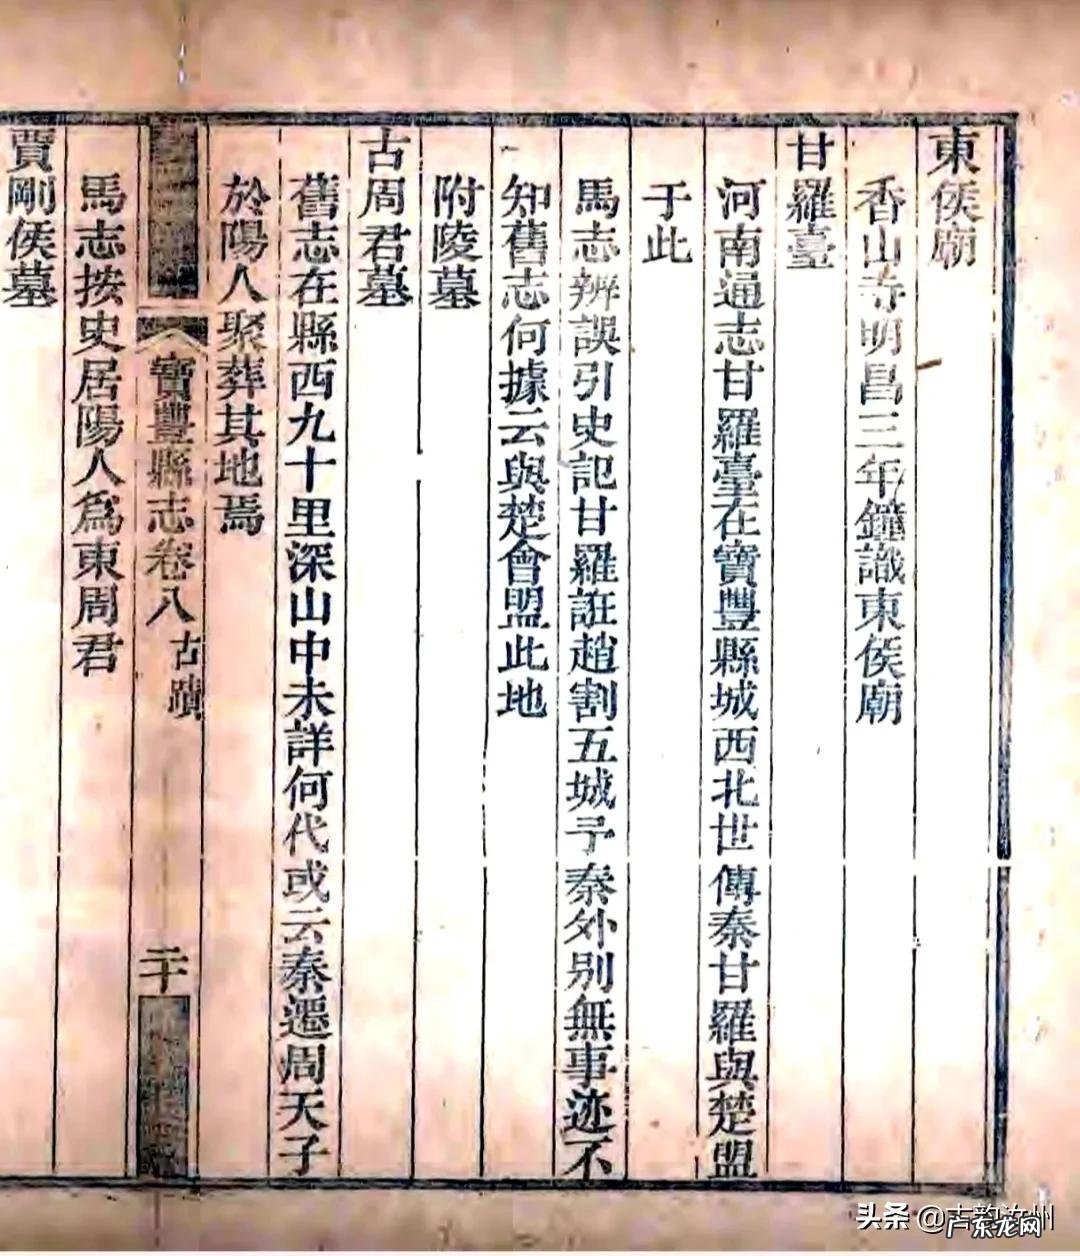 東侯廟
香山寺明昌三年鐘識東侯廟
甘羅臺
河南通志甘羅臺在寶豐縣城西北世傳秦甘羅與楚盟
于此
馬志辨誤引史記甘羅誑趙割五城予秦外別無事迹不
知舊志何據云與楚會盟此地
附陵墓
古周君墓
舊志在縣西九十里深山中未詳何代或云秦遷周天子
於陽人聚葬其地焉
寶豐縣志卷八 古蹟
二十
馬志按史居陽人為東周君
賈剛侯墓
头条 @古韵汝州
卢东龙网